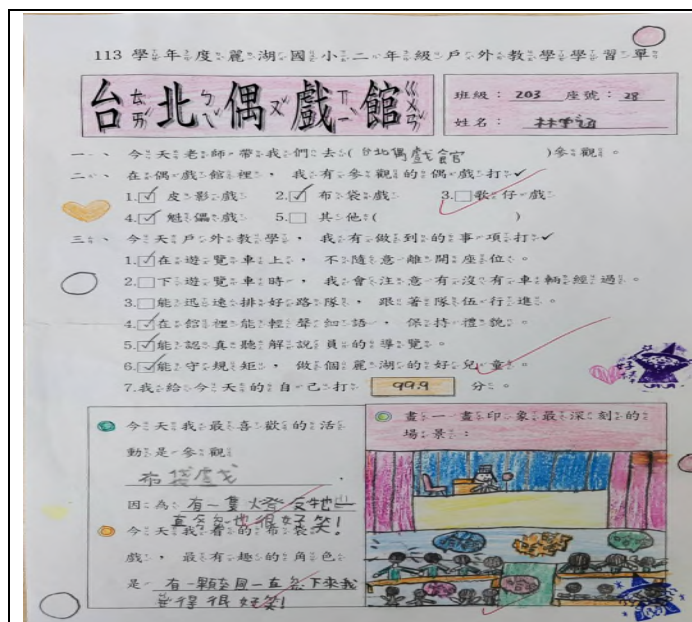 113學年度麗湖國小二年級戶外教學學習單
台ㄊㄞˊ北ㄅㄟˇ偶ㄡˇ戲ㄒㄧˋ館ㄍㄨㄢˇ
班級：203 座號：28
姓名：林
一、今天老師帶我們去(台北偶戲館)參觀。
二、在偶戲館裡，我有參觀的偶戲打✓
1.☑皮影戲 2.☑布袋戲 3.□歌仔戲
4.☑魁儡戲 5.□其他( )
三、今天戶外教學，我有做到的事項打✓
1.☑在遊覽車上，不隨意離開座位。
2.□下遊覽車時，我會注意有沒有車輛經過。
3.□能迅速排好路隊，跟著隊伍行進。
4.☑在館裡能輕聲細語，保持禮貌。
5.☑能認真聽解說員的導覽。
6.☑能守規矩，做個麗湖的好兒童。
7.我給今天的自己打 99.9 分。
今天我最喜歡的活
動是參觀
布袋戲，
因為有一隻火
也很好笑！
今天我看的布袋
戲，最有趣的角色
是有一顆 一直 下來我
覺得很好笑！
畫一畫印象最深刻的
場景：
好棒